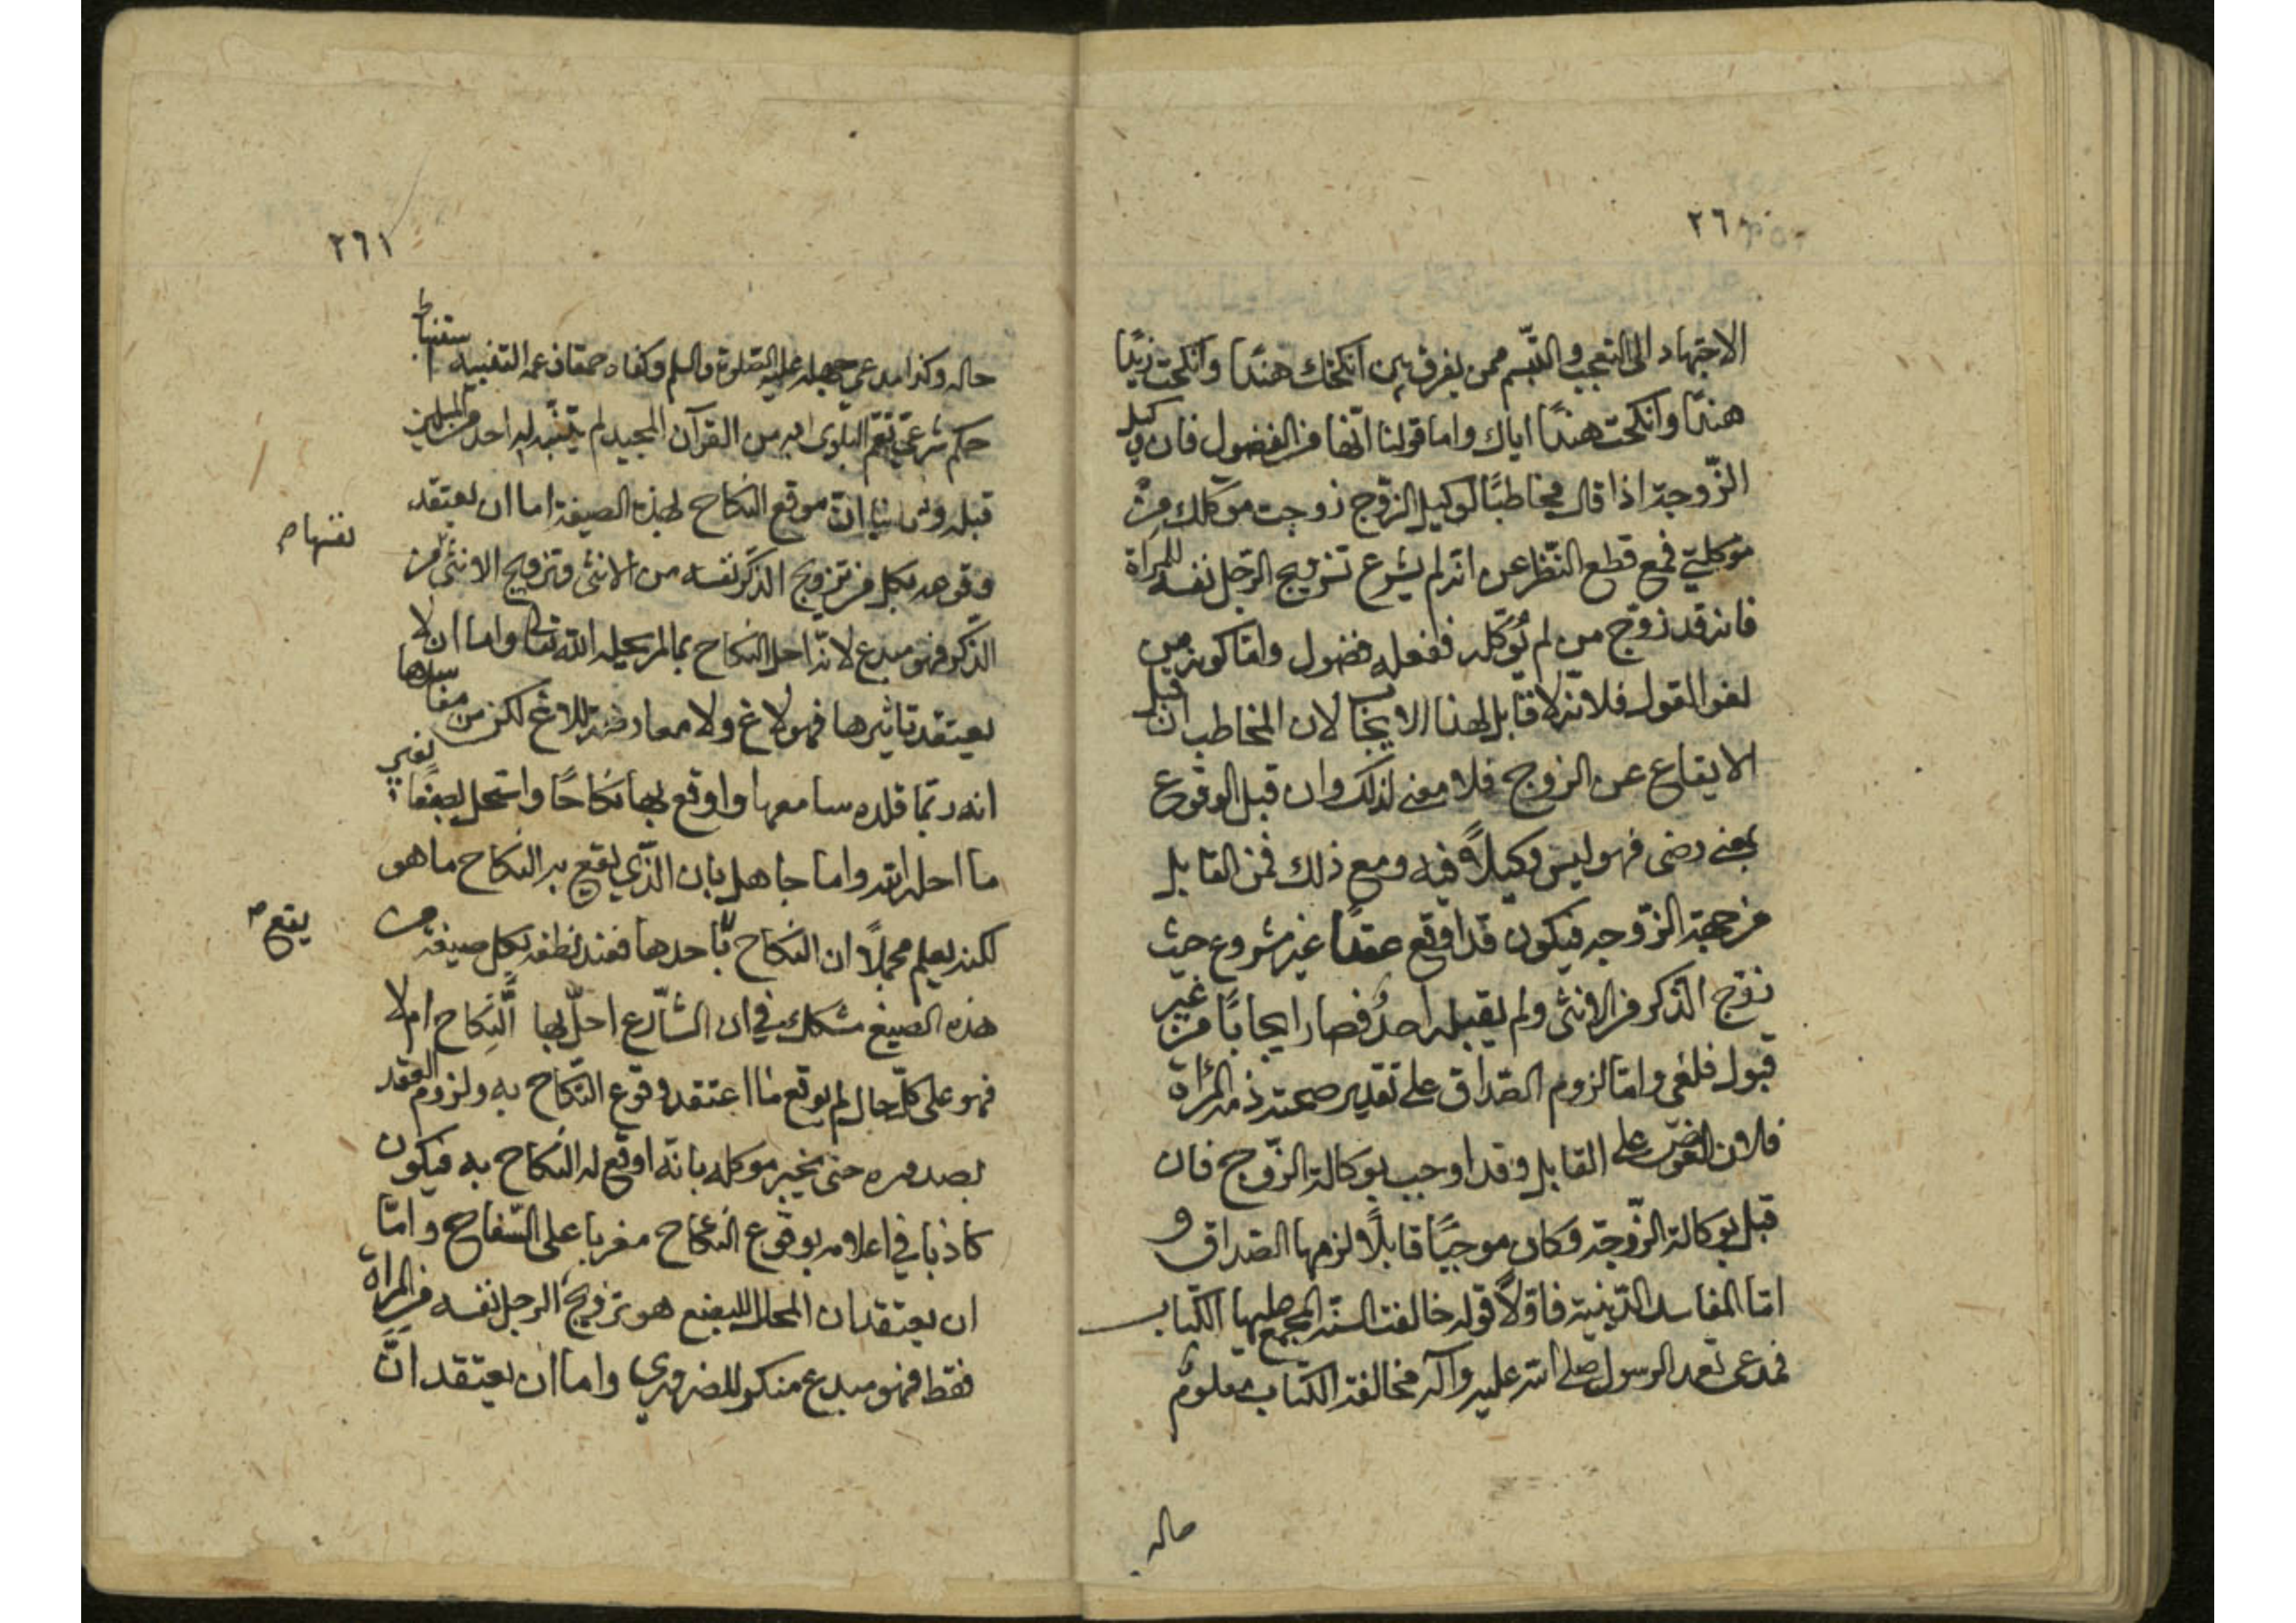 ٢٦
الاجتهاد الى التعجب والتبسم ممن يفرق بين انكحتك هندًا وانكحت زيدًا
هندًا وانكحت هندًا اياك واما قولنا انّها من الفضول فان وكيل
الزّوجة اذا قال مخاطبًا لوكيل الزّوج زوجت موكلك من
موكلتي فمع قطع النّظر عن انه لم يشرع تزويج الرّجل نفسه للمرأة
فانه قد زوّج من لم يُوكّله ففعله فضول وامّا كونه من
لغو القول فلانّه لا قابل لهذا الايجاب لان المخاطب ان قبل
الايقاع عن الزوج فلا معنى لذلك وان قبل الوقوع
بمعنى رضى فهو ليس وكيلاً فيه ومع ذلك فمن القابل
من جهة الزّوجه فيكون قد اوقع عقدًا غير مشروع حيث
زوّج الذكر من الانثى ولم يقبله احدٌ فصار ايجابًا من غير
قبول فلغى وامّا لزوم الصّداق على تقدير صحته ذمه المرأة
فلان العوض على القابل وقد اوجب بوكالة الزّوج فان
قبل بوكالة الزّوجة وكان موجبًا قابلاً ولزمها الصّداق و
امّا المفاسد الدّينيّة فاوّلاً قوله خالفت السنّة المجمع عليها الكتاب
فمدعى تعمد الرسول صلى الله عليه وآله مخالفة الكتاب معلوم
حاله
٢٦١
حاله وكذا مدعي جهله عليه الصّلوة والسلم وكفاه حمقا زعمه التفنيه استنباط
حكم شرعيّ تعمّ البلوى به من القرآن المجيد لم يتنبّه له احد من المسلمين
قبله وثانيا انّ موقع النكاح لهذه الصيغة اما ان يعتقد
وقوعه بكل من تزويج الذكر نفسه من الانثى وتزويج الانثى من
نفسها ص
الذّكر فهو مبدع لانّه احل النّكاح بما لم يحله الله تعالى واما ان لا
يعتقد تاثيرها فهو لاغ ولا معارضة للاغ لكن من مفاسدها
انه ربّما قلده سامعها واوقع بها نكاحًا واستحل بضعًا بغير
ما احله الله واما جاهل بان الّذي يقع به النكاح ما هو
لكنه يعلم مجملاً ان النكاح باحدها فعند نطقه بكل صيغة من
يقع ص
هذه الصيغ مشكك في ان الشّارع احلّ بها النّكاح ام لا
فهو على كلّ حال لم يوقع ما اعتقد وقوع النّكاح به ولزوم العقد
بصدوره حتى يخبر موكله بانّه اوقع له النكاح به فيكون
كاذبا في اعلامه بوقوع النكاح مغريا على السّفاح وامّا
ان يعتقد ان المحلل للبضع هو تزويج الرجل نفسه من المرأة
فقط فهو مبدع منكر للضروري واما ان يعتقد انّ